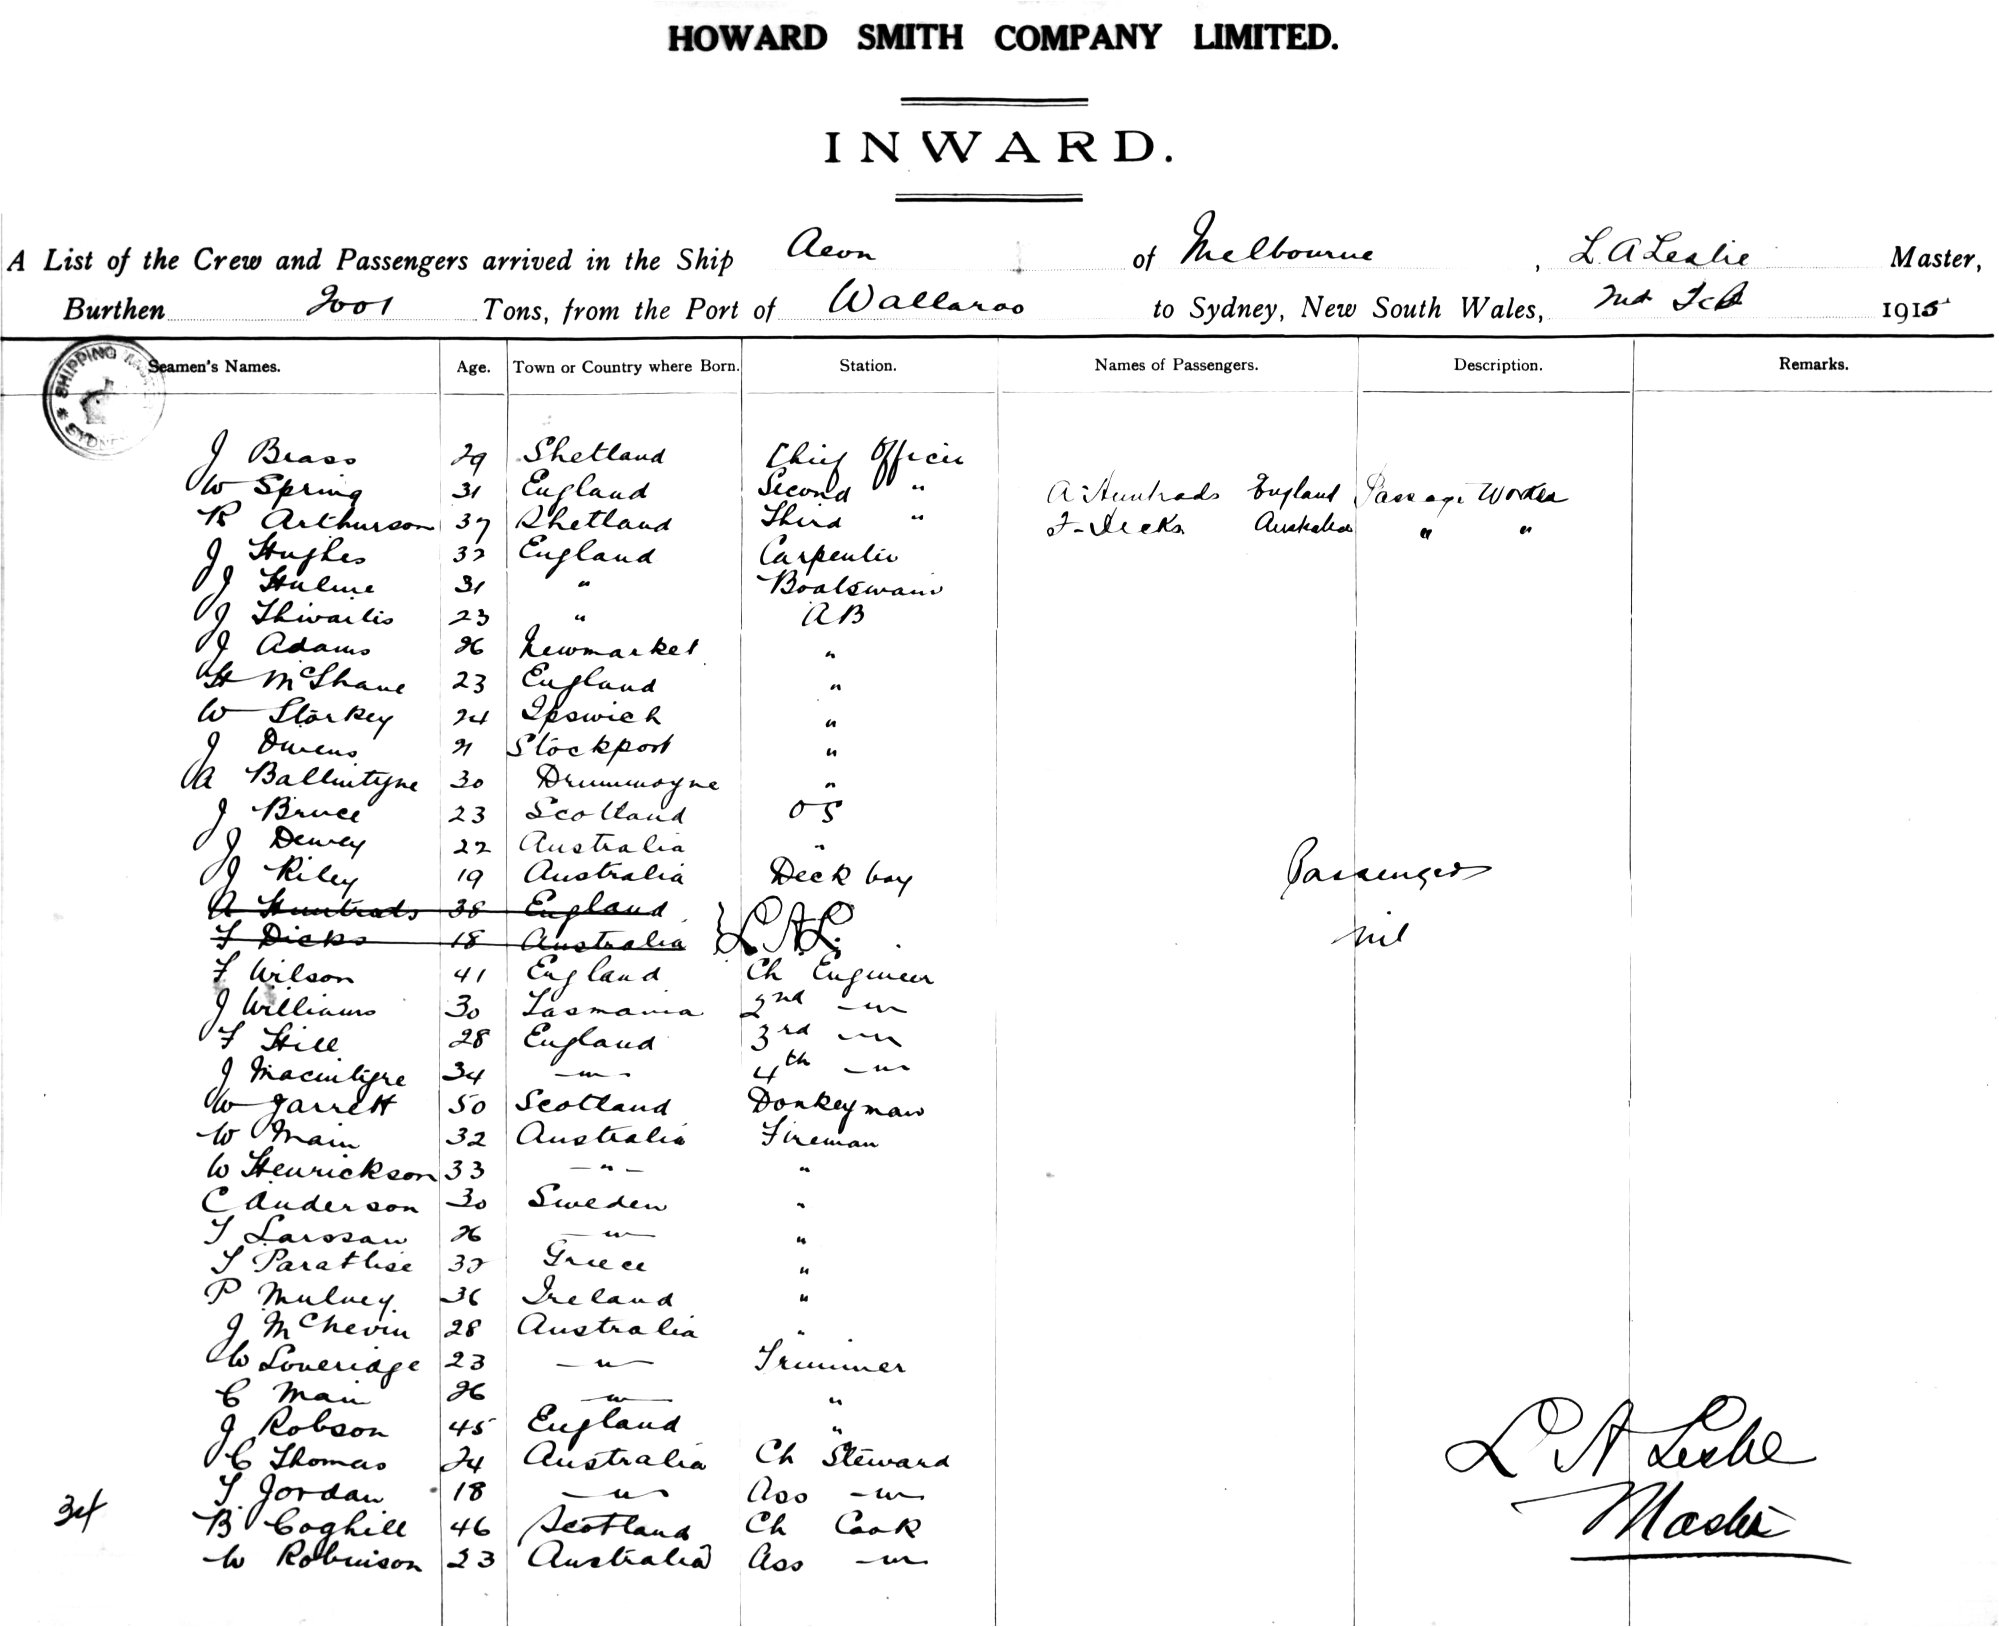 HOWARD SMITH COMPANY LIMITED.
INWARD.
A List of the Crew and Passengers arrived in the Ship Aeon of Melbourne, L. A Leslie Master,
Burthen 2001 Tons, from the Port of Wallaroo to Sydney, New South Wales, 2nd Feb 1915
SHIPPING SYDNEY
Seamen's Names. Age. Town or Country where Born. Station. Names of Passengers. Description. Remarks.
J Brass 29 Shetland Chief Officer
W Spring 31 England Second " A Huntrads England Passage Worker
R Arthurson 37 Shetland Third " F Dicks Australia " "
J Hughes 32 England Carpenter
J Hulme 31 " Boatswain
J Thwaites 23 " AB
J Adams 26 Newmarket "
H McShane 23 England "
W Storkey 24 Ipswich "
J Owens 21 Stockport "
A Ballintyne 30 Drummoyne "
J Bruce 23 Scotland OS
J Dewey 22 Australia "
J Riley 19 Australia Deck boy Passengers
A Huntrads 38 England
F Dicks 18 Australia } L.A.L. nil
F Wilson 41 England Ch Engineer
J Williams 30 Tasmania 2nd -"-
F Hill 28 England 3rd -"-
J Macintyre 34 -"- 4th -"-
W Garrett 50 Scotland Donkeyman
W Main 32 Australia Fireman
W Henrickson 33 -"- "
C Anderson 30 Sweden "
T Larssan 26 -"- "
S Parathise 32 Greece "
P Mulvey 36 Ireland "
J McNevin 28 Australia "
W Loveridge 23 -"- Trimmer
C Main 26 -"- "
J Robson 45 England "
C Thomas 24 Australia Ch Steward L A Leslie
T. Jordan 18 -"- Ass -"-
34 B Coghill 46 Scotland Ch Cook Master
W Robinson 23 Australia Ass -"-